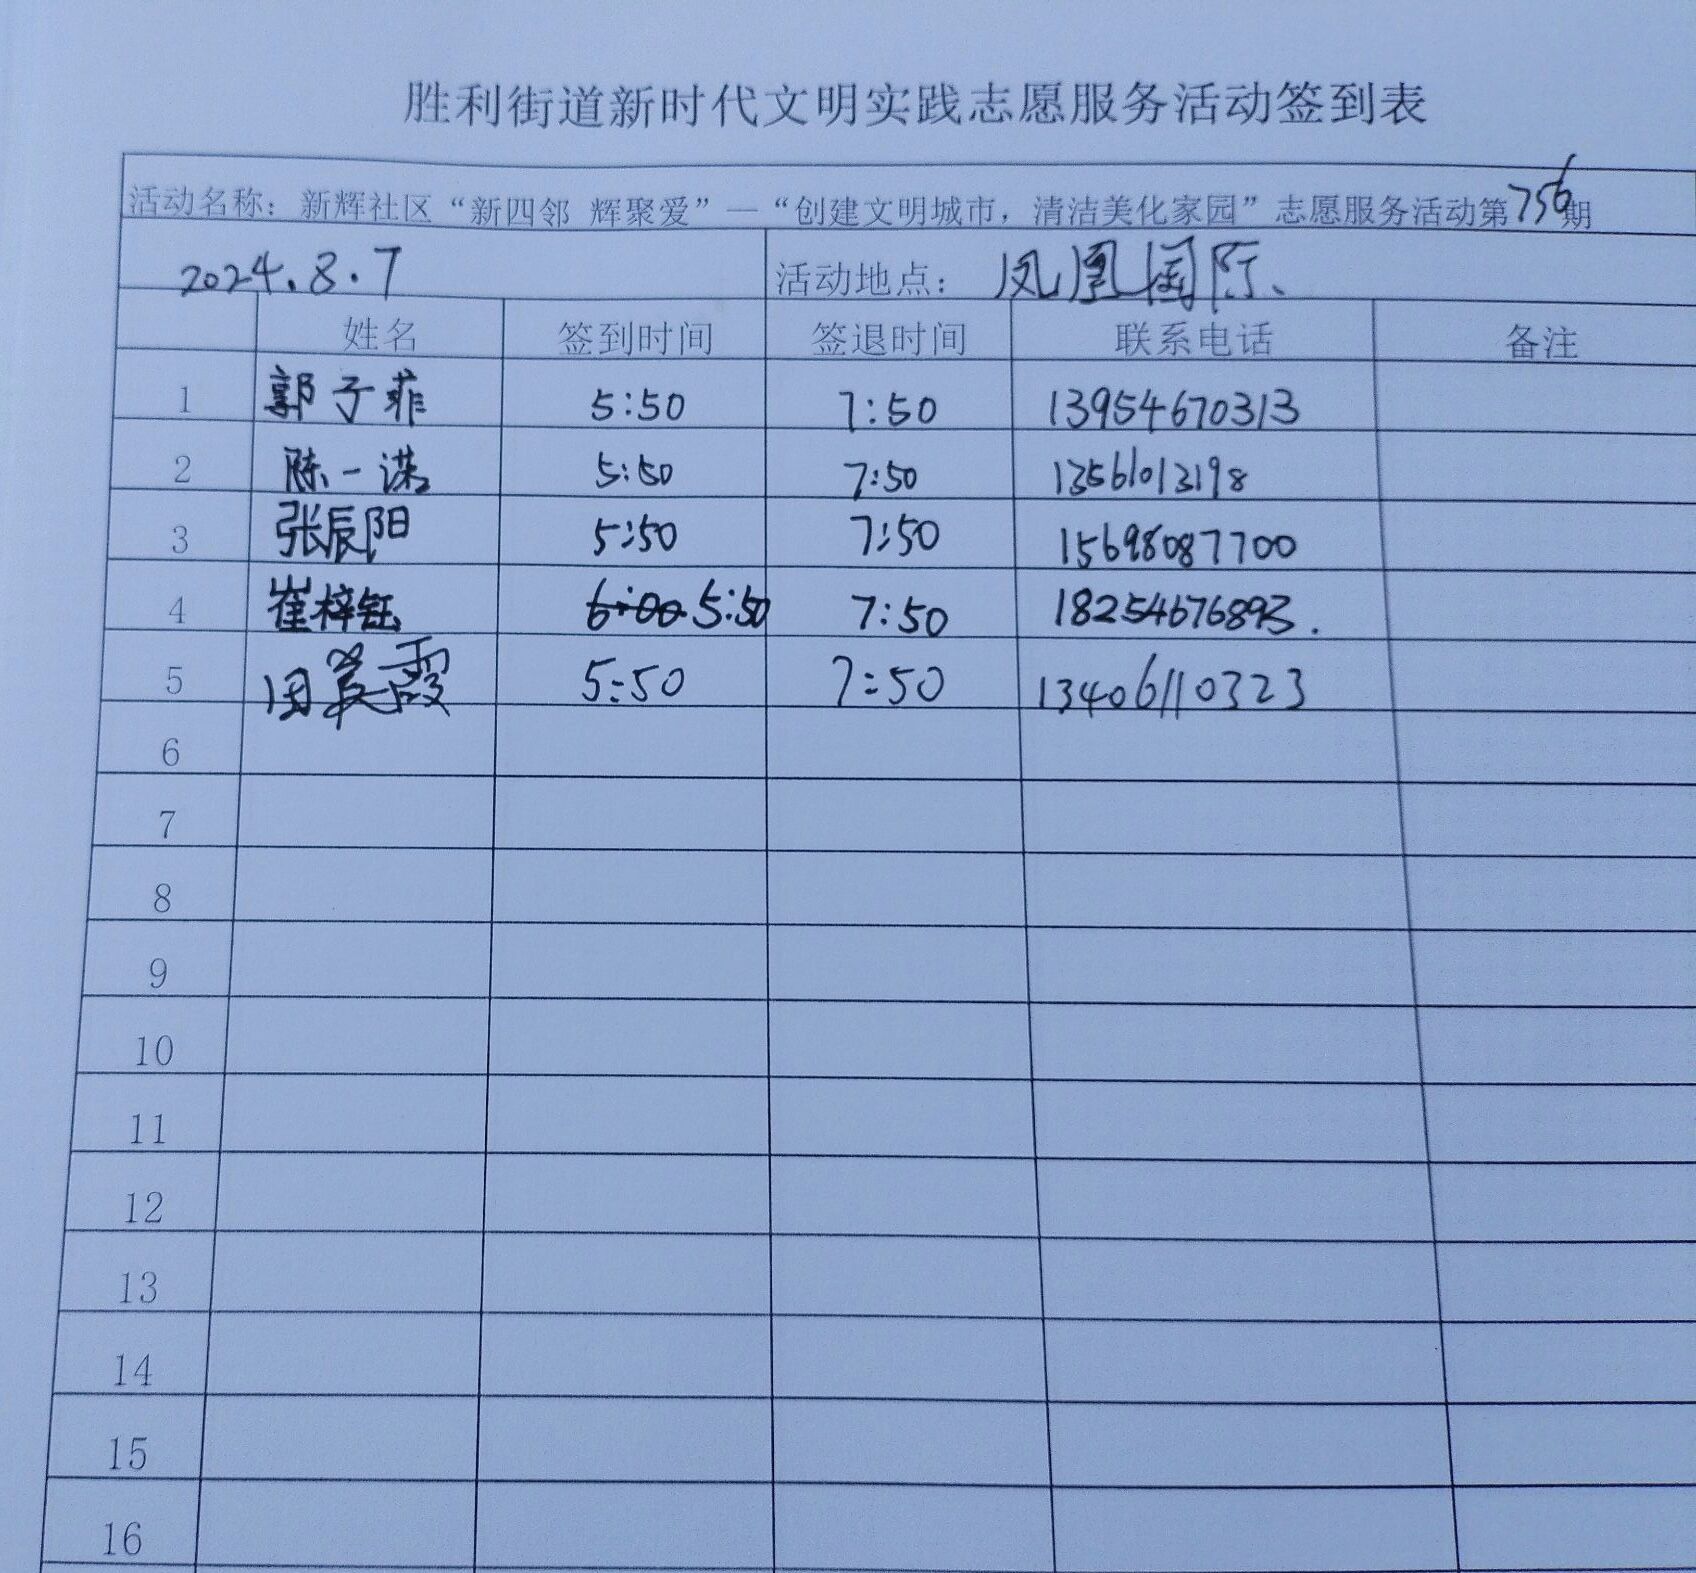 胜利街道新时代文明实践志愿服务活动签到表
活动名称：新辉社区“新四邻 辉聚爱”—“创建文明城市，清洁美化家园”志愿服务活动第756期
2024.8.7 活动地点：凤凰国际、
姓名 签到时间 签退时间 联系电话 备注
1 郭子菲 5:50 7:50 13954670313
2 陈一诺 5:50 7:50 13561013198
3 张辰阳 5:50 7:50 15698087700
4 崔梓钰 6:00 5:50 7:50 18254676893.
5 田美霞 5:50 7:50 13406110323
6
7
8
9
10
11
12
13
14
15
16